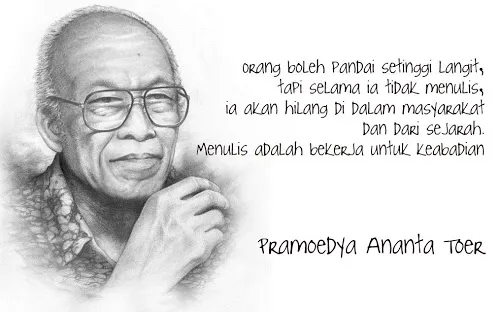 orang boleh pandai setinggi langit,
tapi selama ia tidak menulis,
ia akan hilang di dalam masyarakat
dan dari sejarah.
menulis adalah bekerja untuk keabadian
Pramoedya Ananta Toer